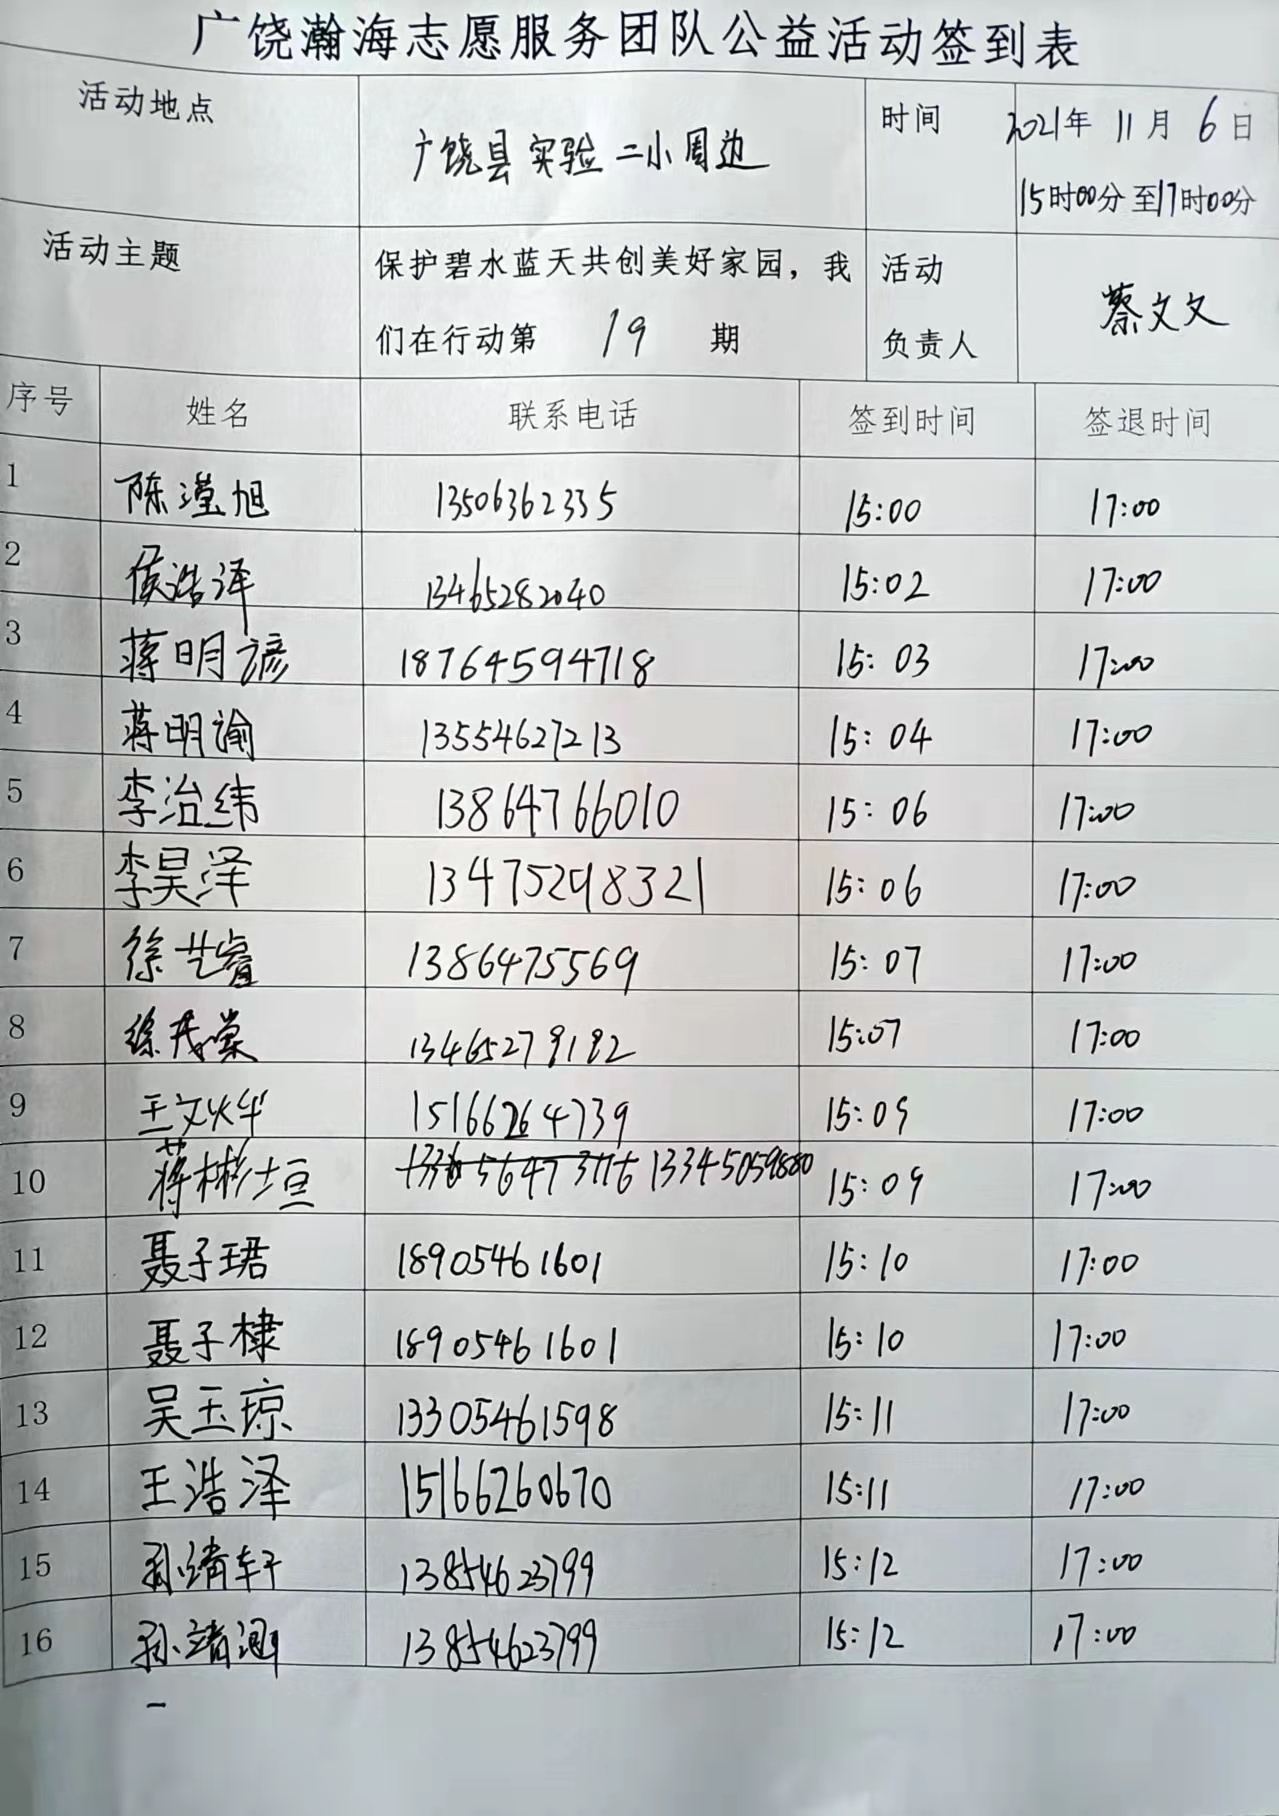 广饶瀚海志愿服务团队公益活动签到表
活动地点 广饶县实验二小周边 时间 2021年 11月 6日
15时00分至17时00分
活动主题 保护碧水蓝天共创美好家园，我们在行动第 19 期 活动负责人 蔡文文
序号 姓名 联系电话 签到时间 签退时间
1 陈滢旭 13506362335 15:00 17:00
2 侯浩泽 13465282040 15:02 17:00
3 蒋明谚 18764594718 15:03 17:00
4 蒋明谕 13554627213 15:04 17:00
5 李治纬 13864766010 15:06 17:00
6 李昊泽 13475298321 15:06 17:00
7 徐艺睿 1386475569 15:07 17:00
8 徐茂棠 13465279192 15:07 17:00
9 王文烨 15166264739 15:09 17:00
10 蒋彬垣 13345059880 15:09 17:00
11 聂子珺 18905461601 15:10 17:00
12 聂子棣 18905461601 15:10 17:00
13 吴玉琼 13305461598 15:11 17:00
14 王浩泽 15166260670 15:11 17:00
15 孙靖轩 13854623799 15:12 17:00
16 孙靖涵 13854623799 15:12 17:00